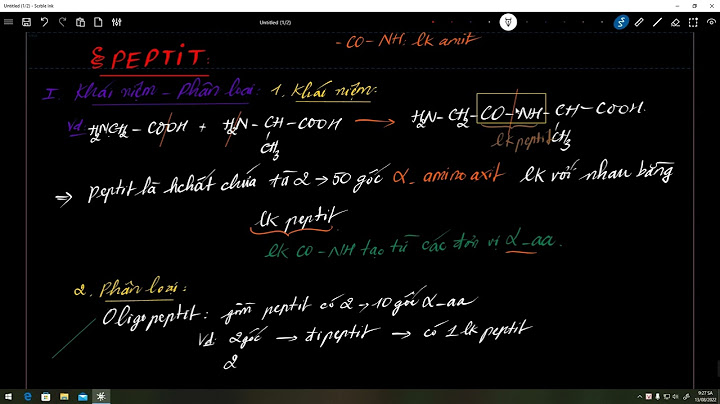 Untitled (1/2) - Scrble Ink
Untitled (1/2)
- CO - NH: lk amit
§ PEPTIT:
I. Khái niệm - Phân loại: 1. Khái niệm:
Vd H₂NCH₂ - COOH + H₂N - CH - COOH → H₂N - CH₂ - CO - NH - CH - COOH.
CH₃ CH₃
lk peptit
⇒ peptit là hchất chứa từ 2 → 50 gốc α_amino axit lk với nhau bằng
lk peptit.
lk CO-NH tạo từ các đơn vị α_aa.
2. Phân loại:
Oligopeptit: gồm peptit có 2 → 10 gốc α_aa
Vd: 2 gốc → đipeptit → có 1 lk peptit
2
9:27 SA
13/08/2022